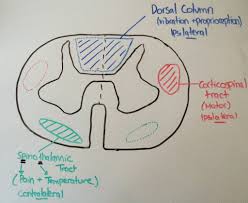 Dorsal Column
(vibration + proprioception)
Ipsilateral
Corticospinal
tract
(Motor)
Ipsilateral
Spinothalamic
Tract
(Pain + Temperature)
Contralateral